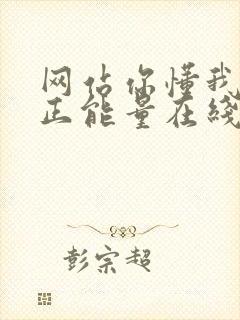 网站你懂我
正能量在线
彭宗超